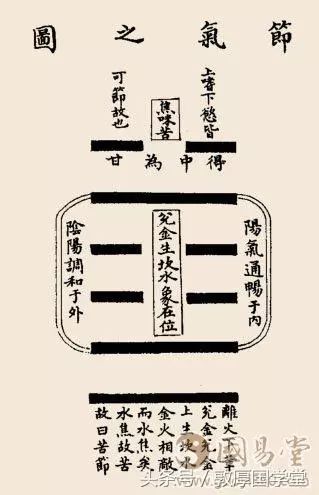 節氣之圖
上嗜下慾皆
可節故也
焦味苦
得中為甘
陽氣通暢于內
兌金生坎水象在位
陰陽調和于外
離火下
兌金兌金
上生坎水
金火相敵
而水焦矣
水焦故苦
故曰苦節
國易堂
头条号/敦厚国学堂